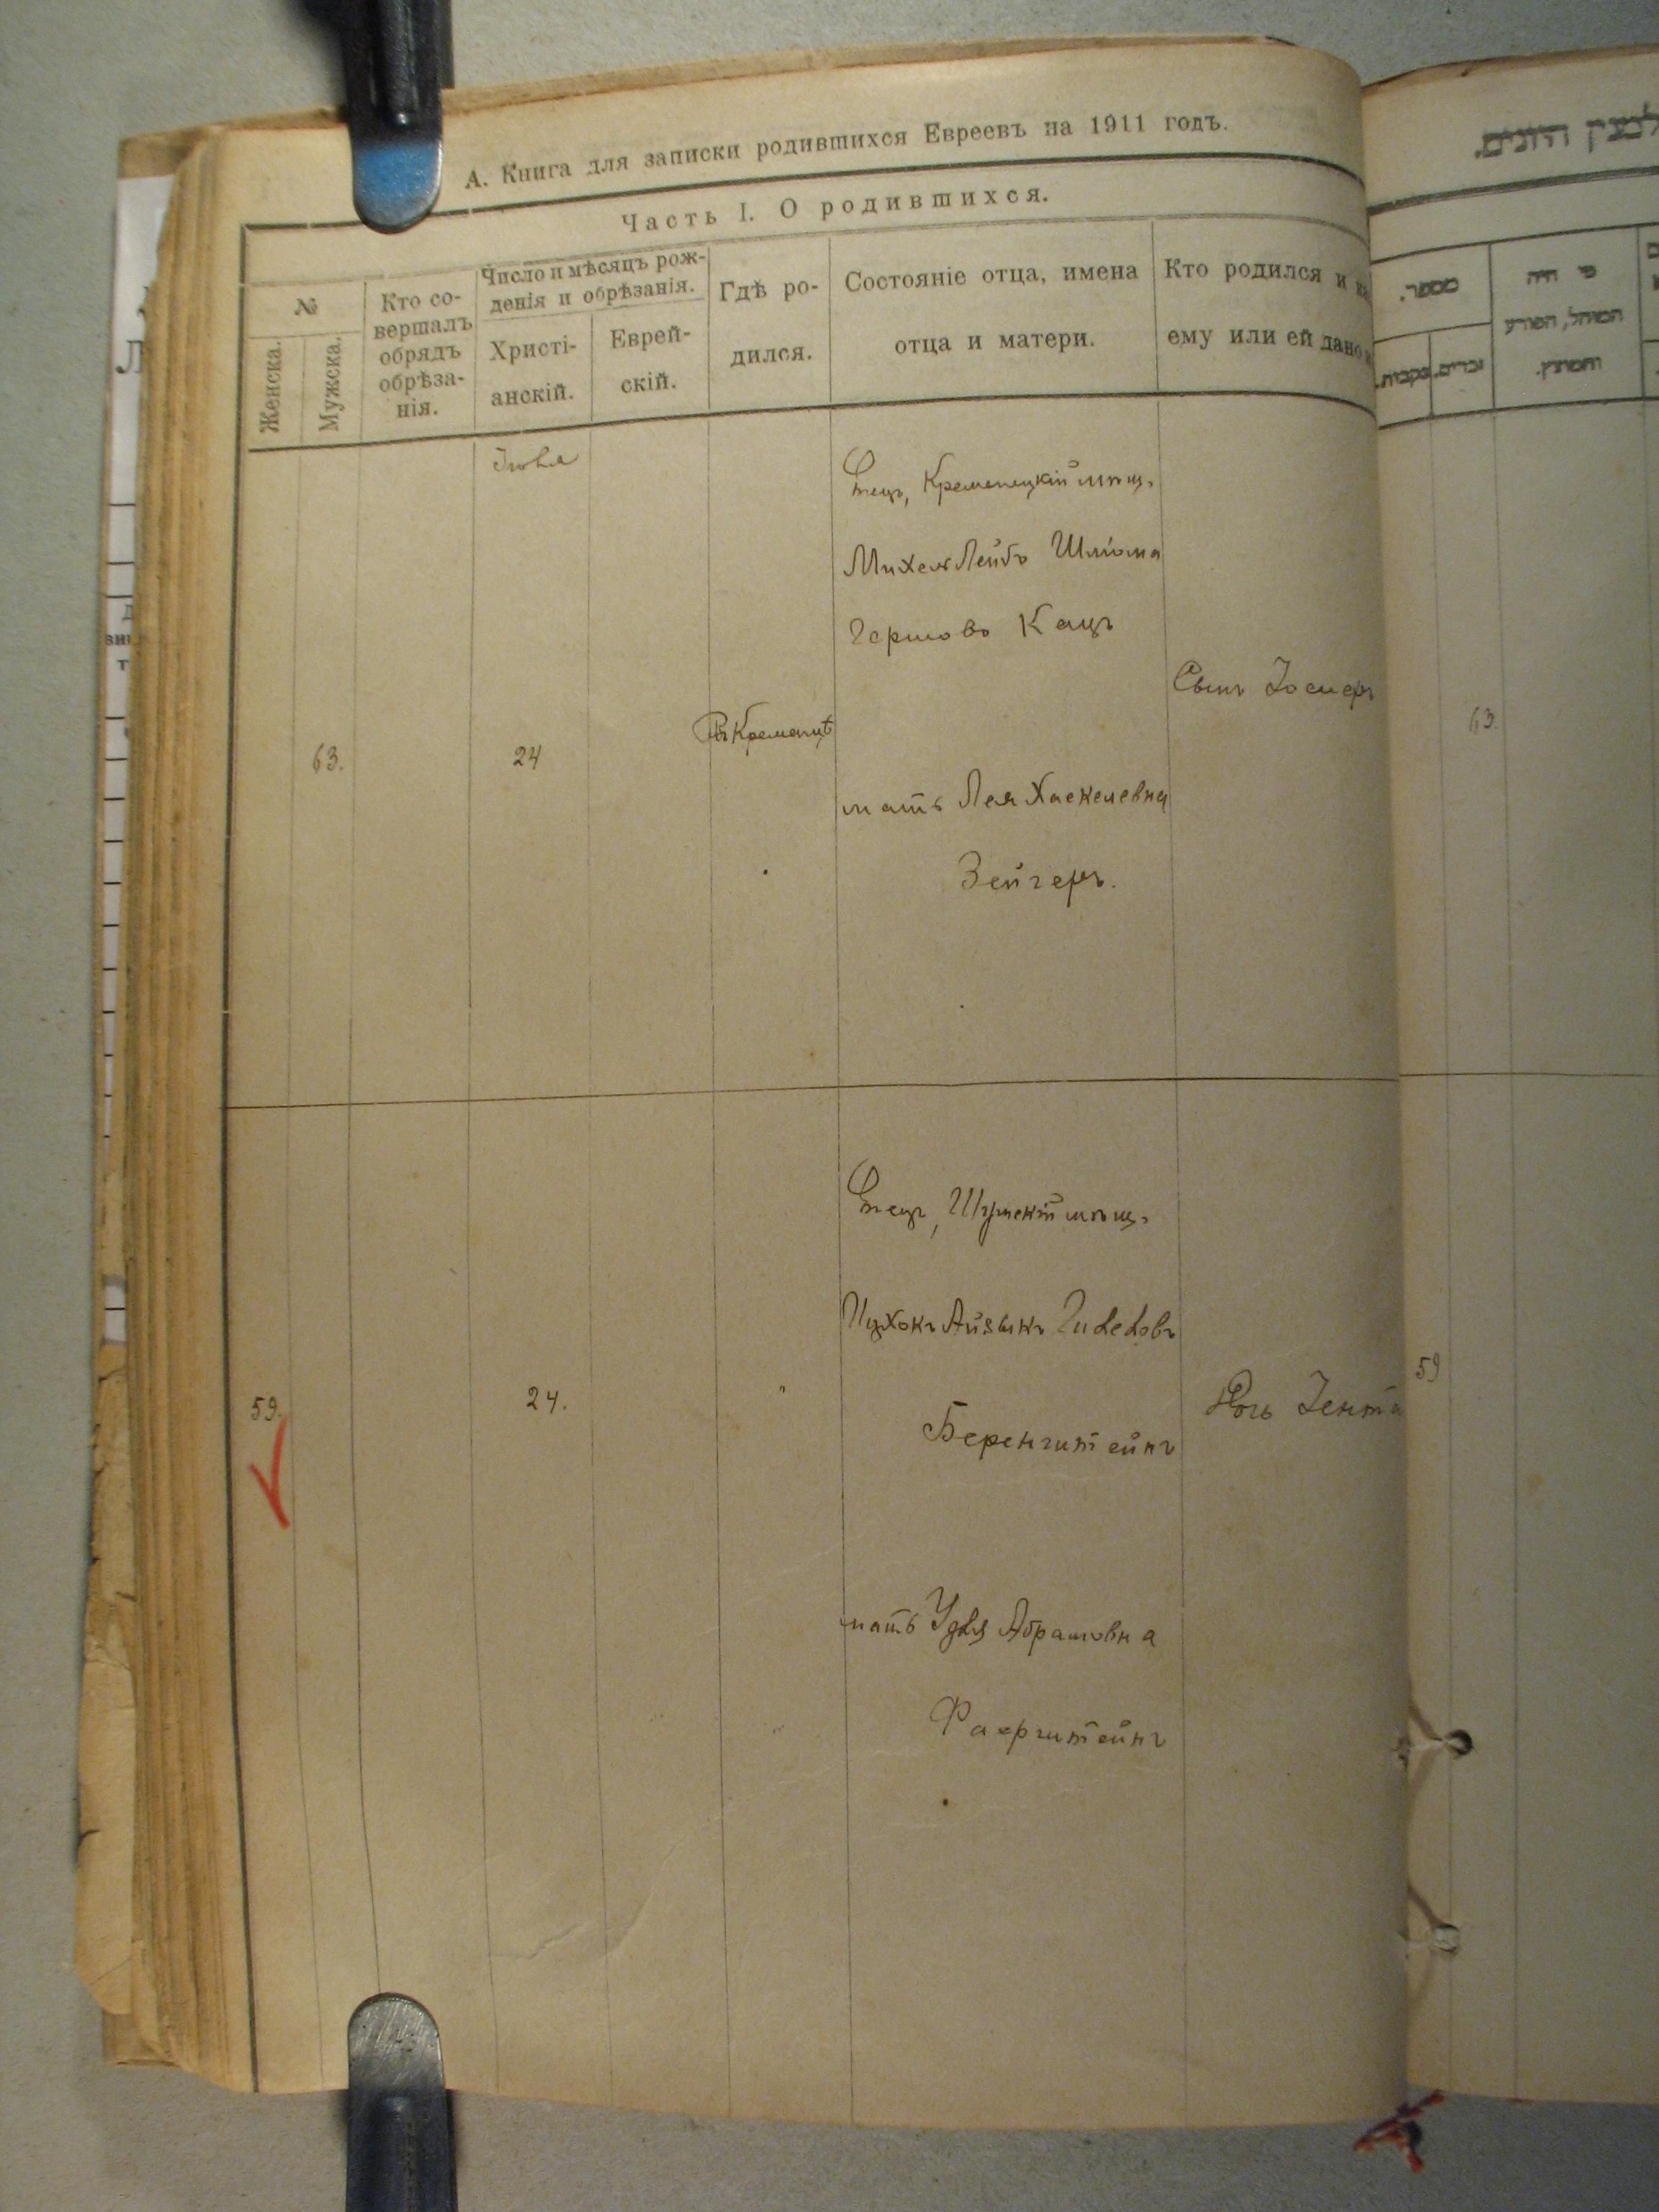 А. Книга для записки родившихся Евреевъ на 1911 годъ.
Часть I. О родившихся.
№
Женска.
Мужска.
Кто со-
вершалъ
обрядъ
обрѣза-
нія.
Число и мѣсяцъ рож-
денія и обрѣзанія.
Христі-
анскій.
Еврей-
скій.
Гдѣ ро-
дился.
Состояніе отца, имена
отца и матери.
Кто родился и
ему или ей дано
Іюля
63.
24
Въ Кременцѣ
Отецъ, Кременецкій мѣщ.
Михель Лейбъ Шлiома
Гершовъ Кацъ
мать Лея Хаскелевна
Зейгеръ.
Сынъ
59.
24.
"
Отецъ, Шумскій мѣщ.
Ицхокъ Айзыкъ
Беренштейнъ
мать Удля Абрамовна
Фаерштейнъ
Дочь Іента
מספר.
זכרים.
נקבות.
מי היה
המוהל, הפורע
והמוצץ.
63.
59